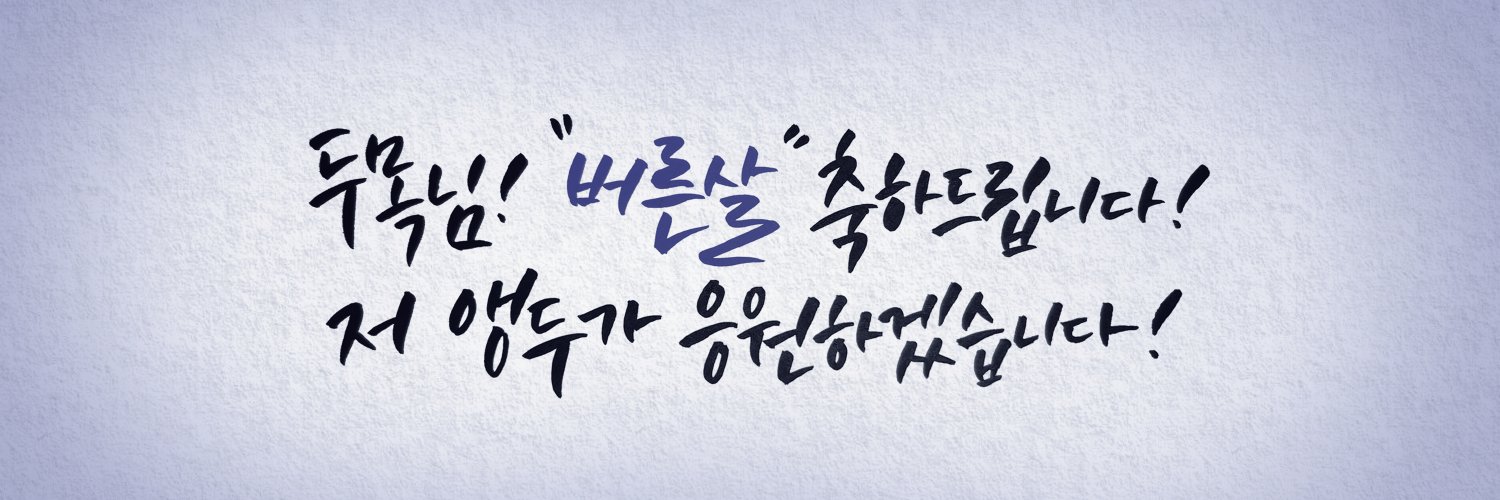 두목님! "버른살" 축하드립니다!
저 앵두가 응원하겠습니다!